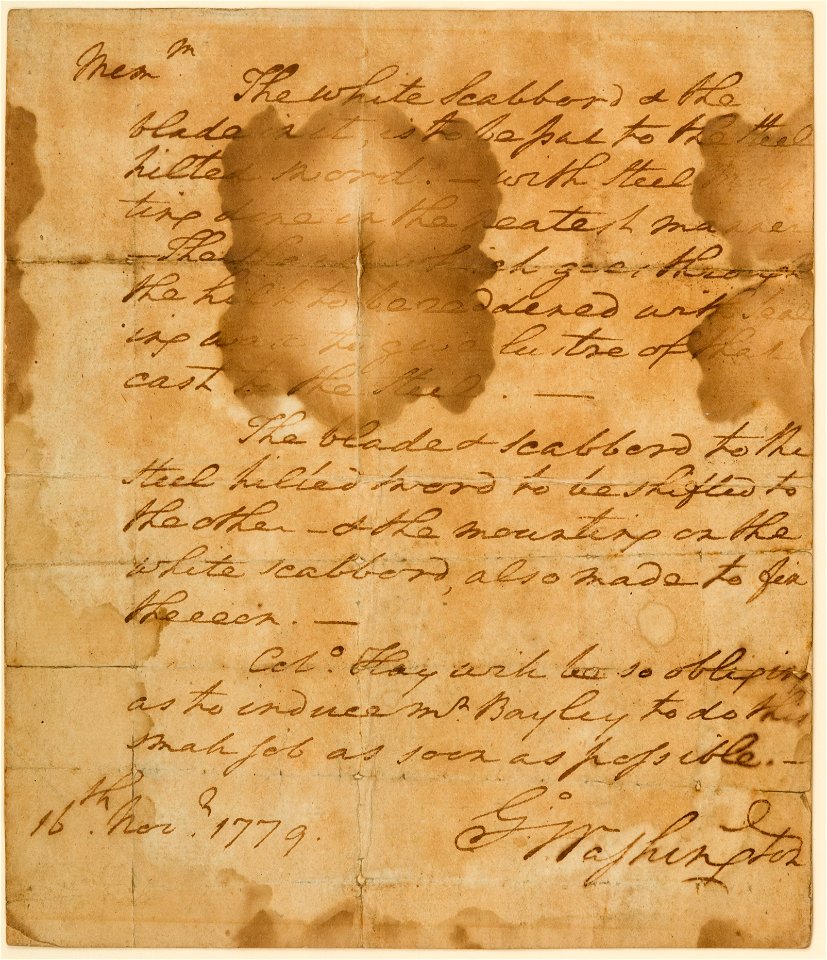 Mem.m
The white Scabbord & the
blade in it, is to be put to the steel
hilted sword. — with steel
ting done in the neatest manner
— The which goes through
the hilt to be reddened with Seal
ing wax to give lustre of that
cast to the Steel. —
The blade & scabbord to the
steel hilted sword to be shifted to
the other — & the mounting on the
white scabbord, also made to fix
thereon. —
Colo. Hay will be so obliging
as to induce Mr. Bayley to do this
small job as soon as possible. —
16th. Novr. 1779.
Go. Washington